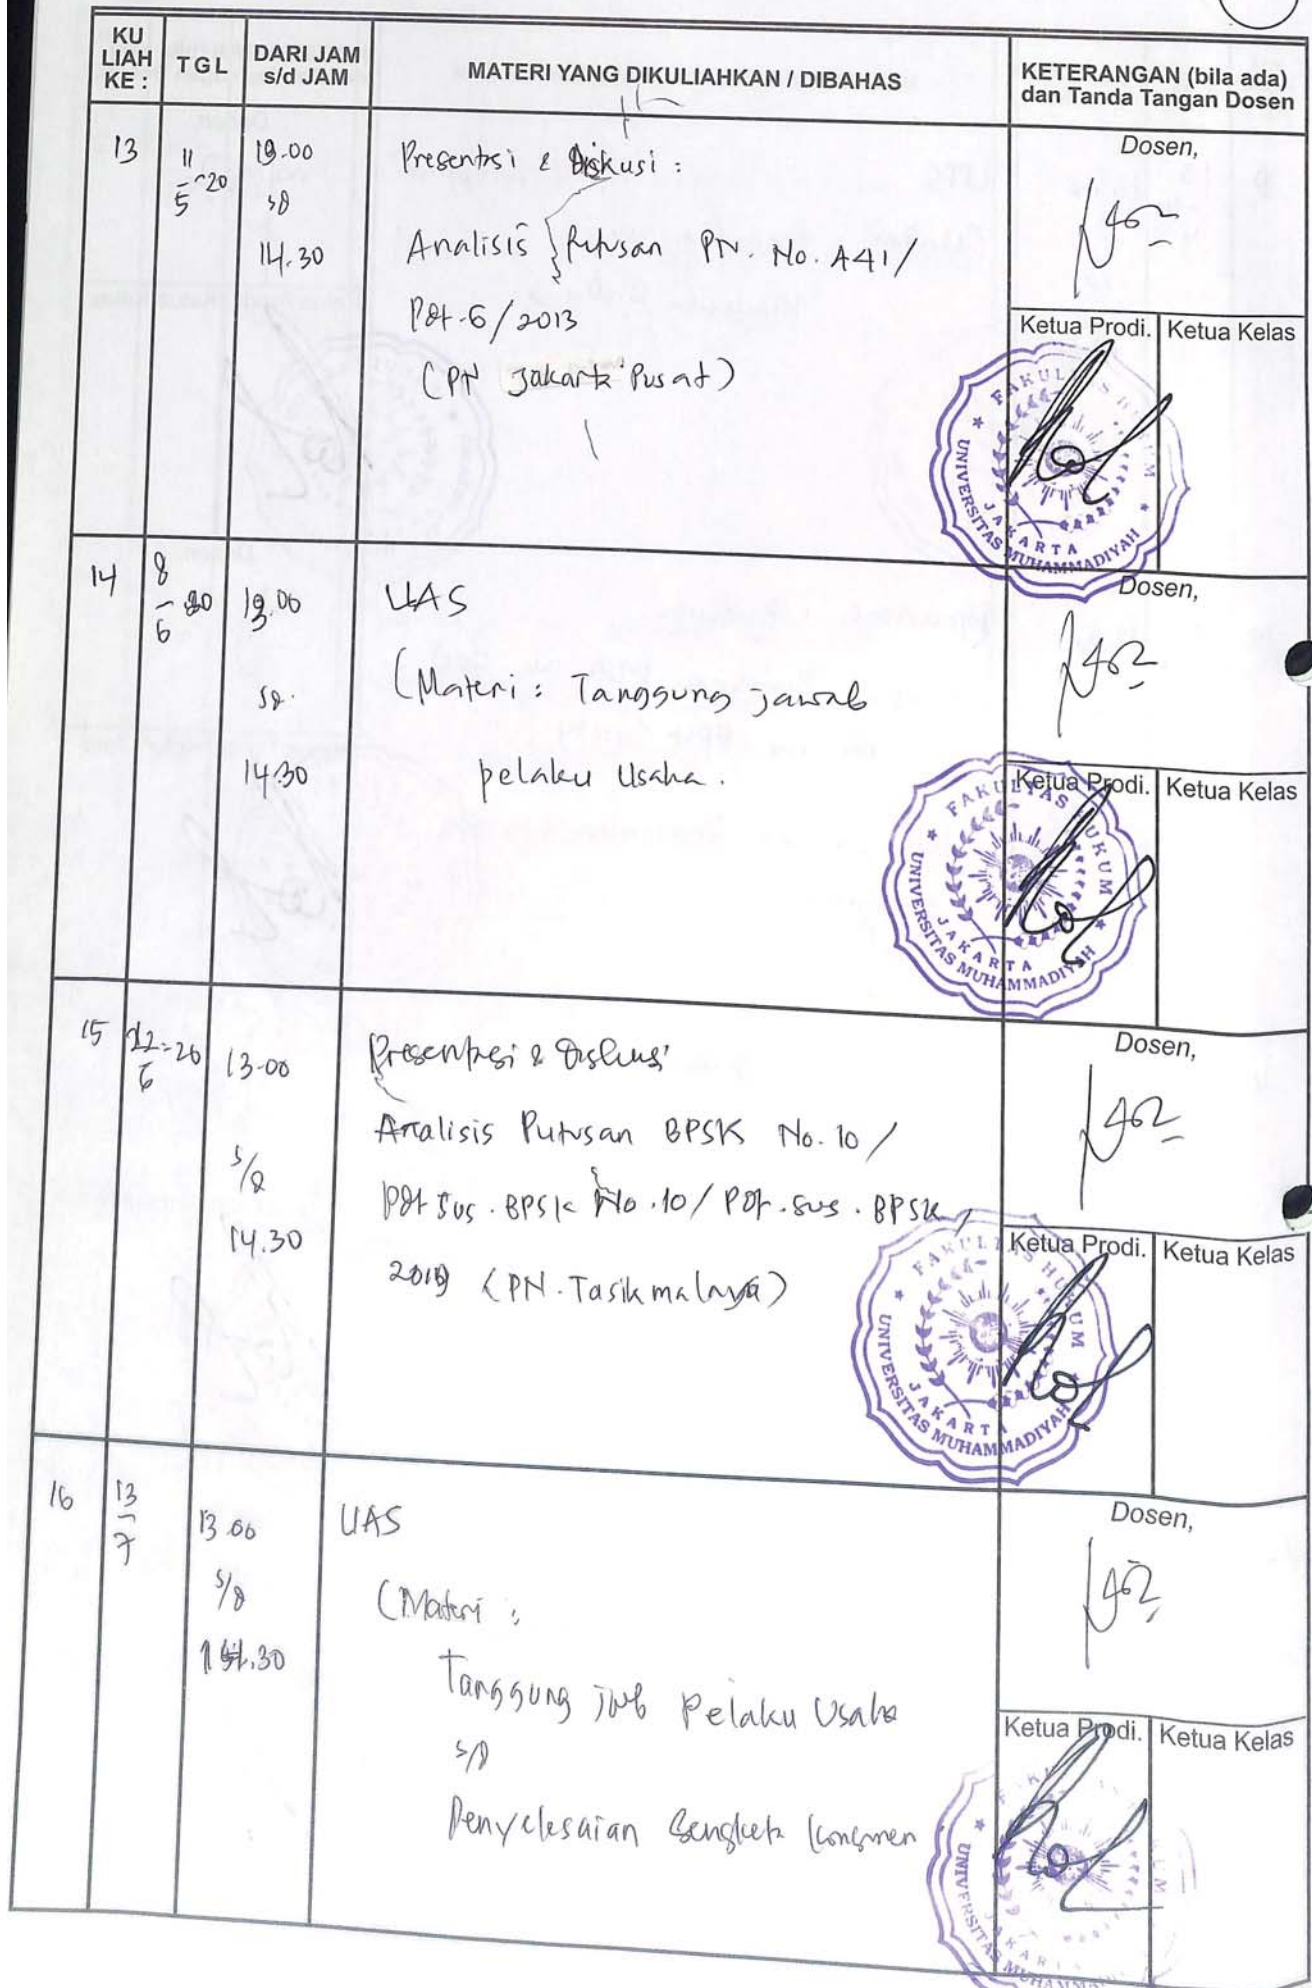 KU
LIAH
KE :
TGL
DARI JAM
s/d JAM
MATERI YANG DIKULIAHKAN / DIBAHAS
KETERANGAN (bila ada)
dan Tanda Tangan Dosen
13
11
5 -20
13.00
sd
14.30
Presentasi & Diskusi :
Analisis Putusan PN. No. 441/
Pdt.G/2013
(PN Jakarta Pusat)
Dosen,
Ketua Prodi.
Ketua Kelas
FAKULTAS HUKUM
UNIVERSITAS MUHAMMADIYAH
JAKARTA
14
8
6 20
13.00
sd.
14.30
UAS
(Materi : Tanggung jawab
pelaku Usaha.
Dosen,
Ketua Prodi.
Ketua Kelas
FAKULTAS HUKUM
UNIVERSITAS MUHAMMADIYAH
JAKARTA
15
22
6 -20
13.00
s/d
14.30
Presentasi & Diskusi
Analisis Putusan BPSK No. 10/
Pdt Sus. BPSK No. 10/Pdt.sus. BPSK,
2019 (PN. Tasikmalaya)
Dosen,
Ketua Prodi.
Ketua Kelas
FAKULTAS HUKUM
UNIVERSITAS MUHAMMADIYAH
JAKARTA
16
13
7
13.00
s/d
14.30
UAS
(Materi :
Tanggung jwb Pelaku Usaha
s/d
Penyelesaian Sengketa Konsumen
Dosen,
Ketua Prodi.
Ketua Kelas
UNIVERSITAS MUHAMMA
JAKAR